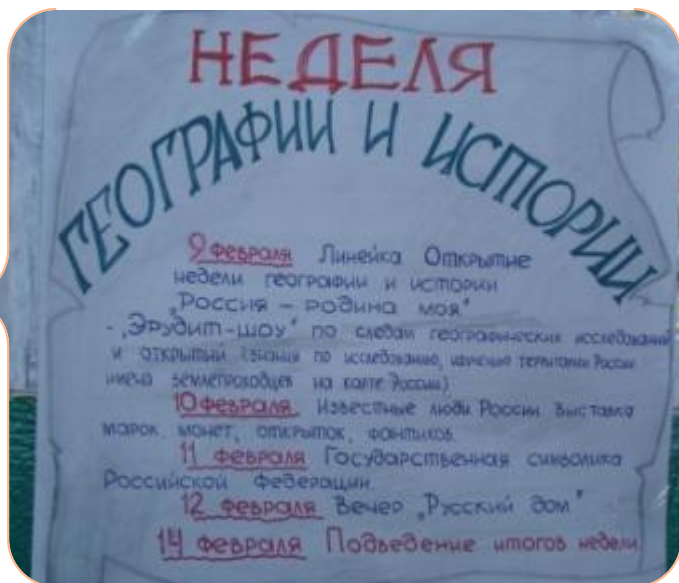 НЕДЕЛЯ
ГЕОГРАФИИ И ИСТОРИИ
9 февраля Линейка Открытие
недели географии и истории
„Россия – родина моя"
- „Эрудит-шоу" по следам географических исследований
и открытий (знания по исследованию, изучению территории России
имена землепроходцев на карте России)
10 февраля Известные люди России. Выставка
марок, монет, открыток, фантиков.
11 февраля Государственная символика
Российской Федерации.
12 февраля Вечер „Русский дом"
14 февраля Подведение итогов недели.